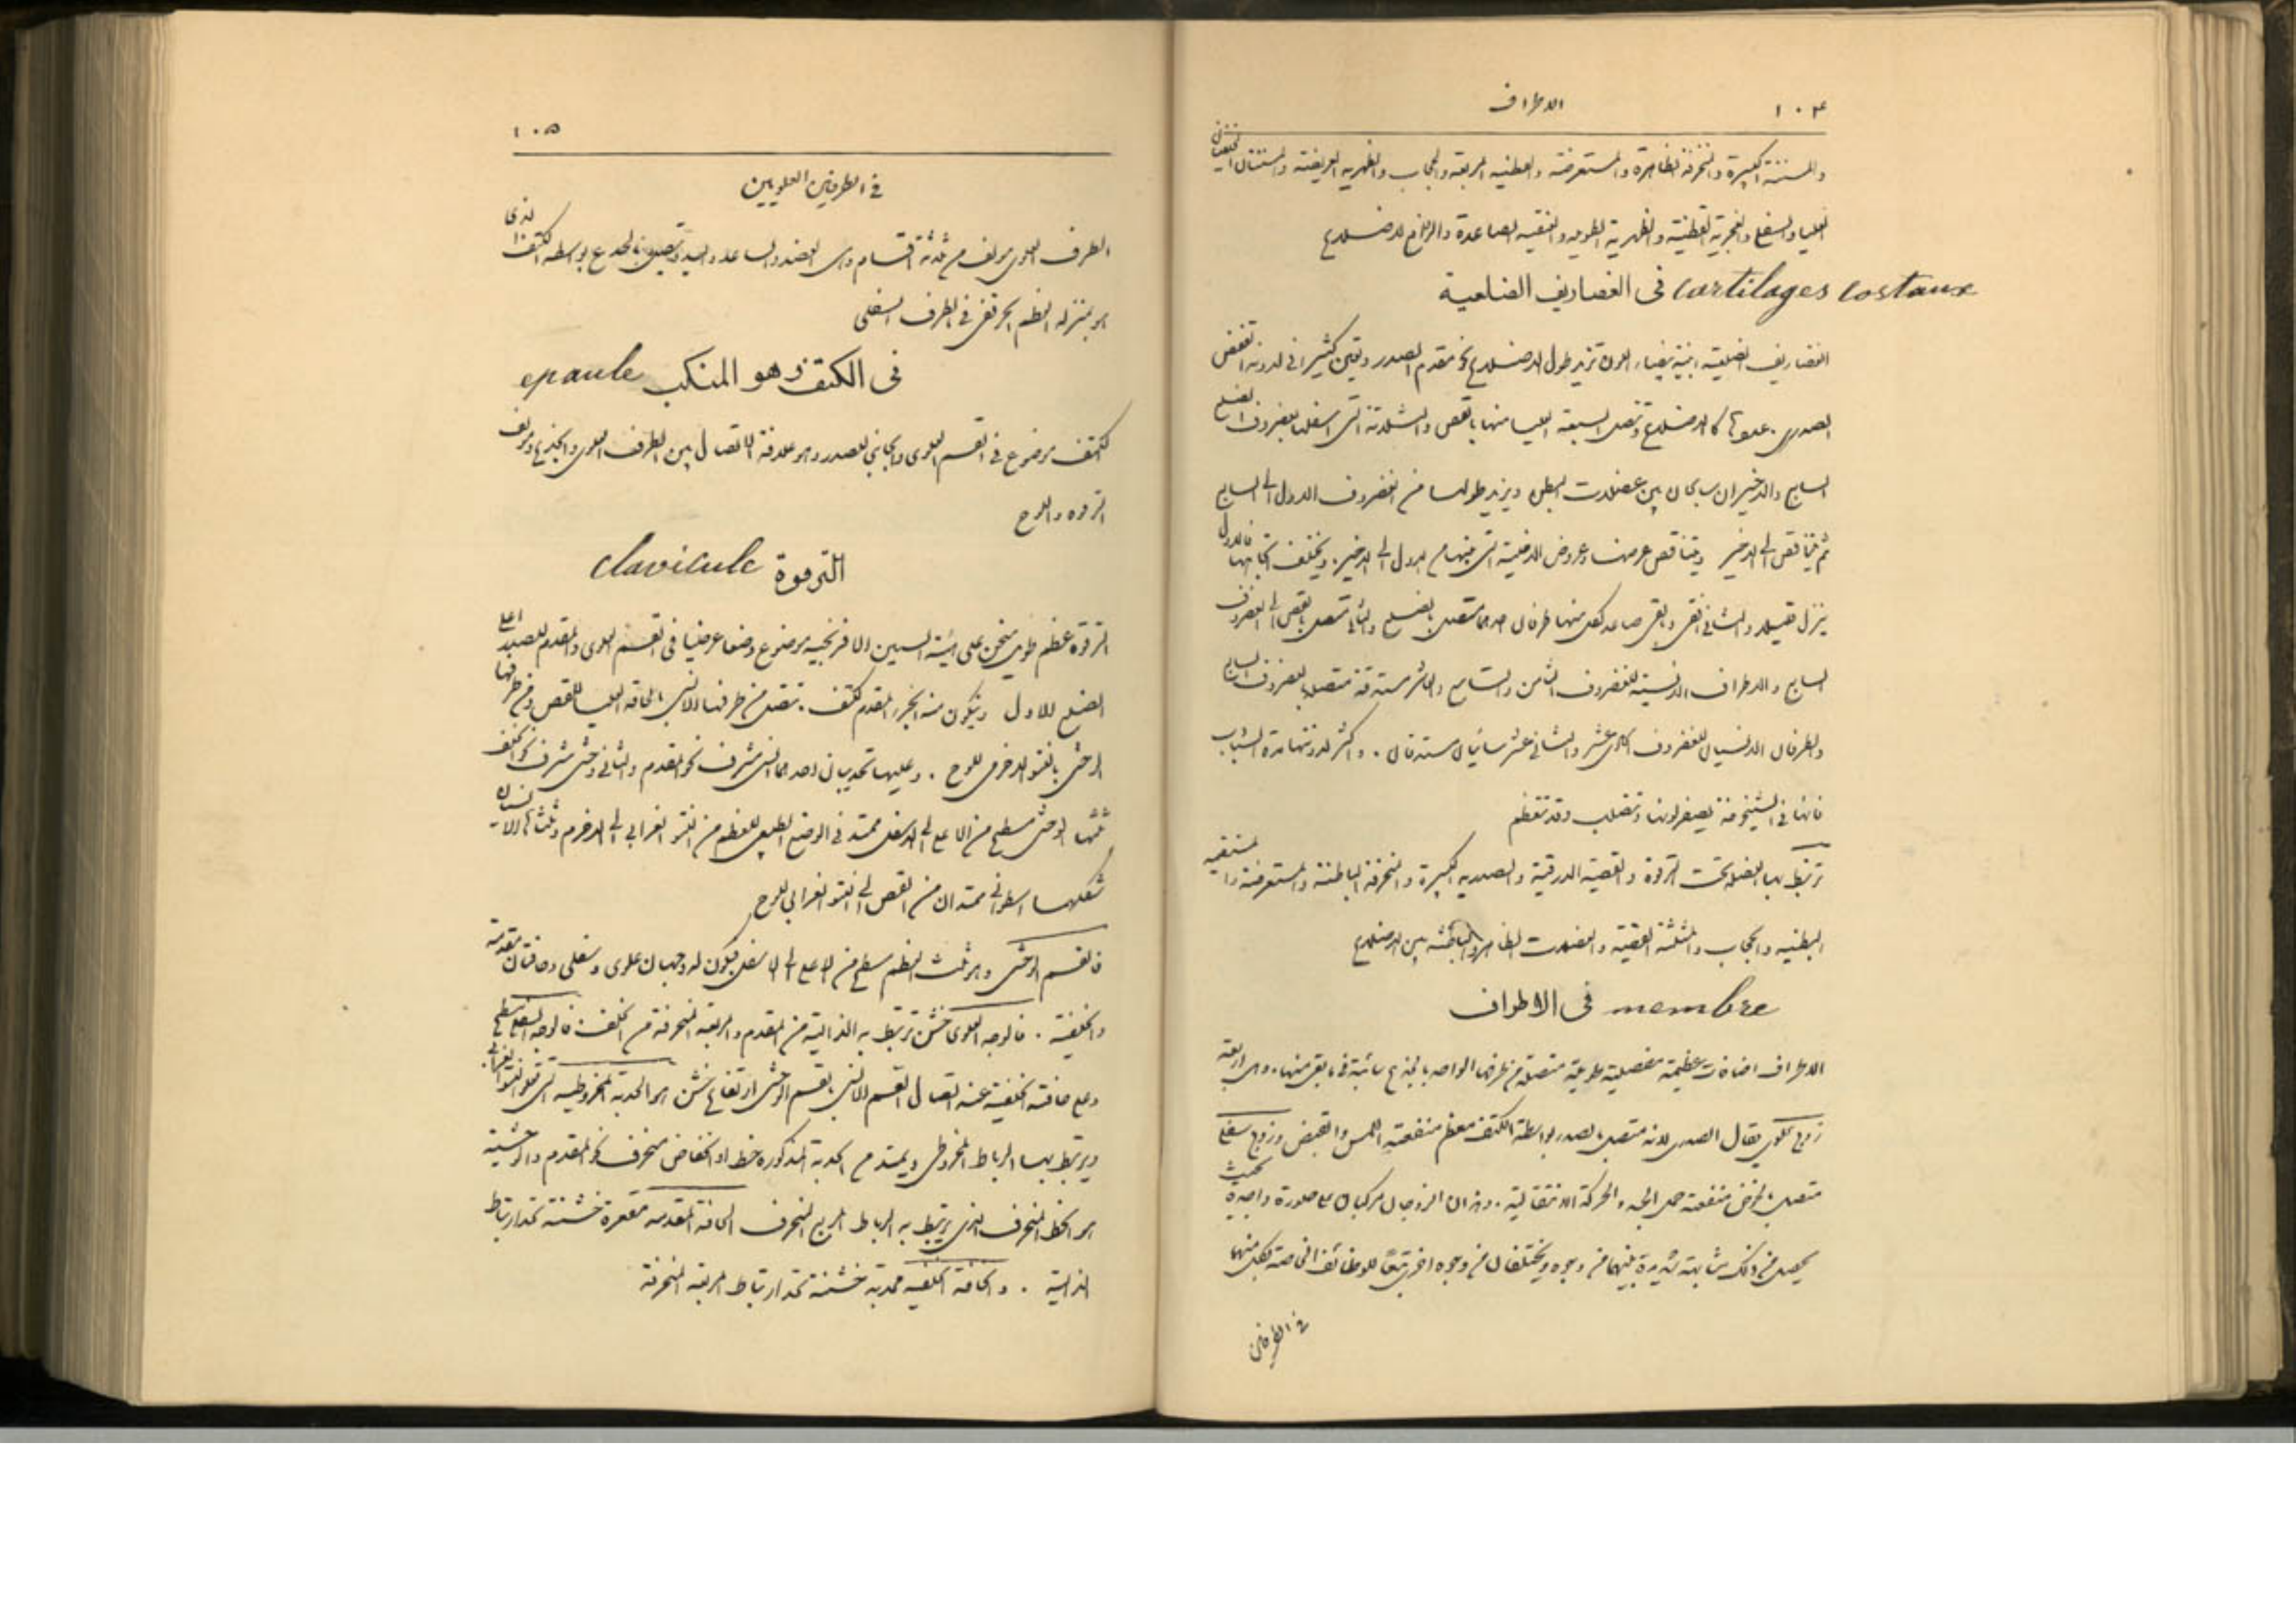 ١٠٤ الاطراف
والمسننة الكبيرة والمنحرفة الظاهرة والمستعرضة والقطنية المربعة والحجاب والظهرية العريضة والمسننتان الخلفيتان
العليا والسفلى والعجزية القطنية والظهرية الطويلة والعنقية الصاعدة والرافعات للاضلاع
فى الغضاريف الضلعية cartilages costaux
الغضاريف الضلعية ابنية بيضاء اللون تزيد طول الاضلاع نحو مقدم الصدر وتعين كثيرا في لدونة القفص
الصدرى. عددها كالاضلاع وتتصل السبعة العليا منها بالقص والثلاثة التى اسفلها بغضروف الضلع
السابع والاخيران سائبان بين عضلات البطن ويزيد طولها من الغضروف الاول الى السابع
ثم يتناقص الى الاخير ويتناقص عرضها وعروض الاخلية التى بينها من الاول الى الاخير. ويختلف اتجاهها فالاول
ينزل قليلا والثاني افقى والبقى صاعد لكل منها طرفان احدهما متصل بالضلع والثاني متصل بالقص الى الغضروف
السابع والاطراف الانسية للغضروف الثامن والتاسع والعاشر مستدقة متصلة بالغضروف السابع
والطرفان الانسيان للغضروف الحادى عشر والثانى عشر سائبان مستدقان. واكثر لدونتها مدة الشباب
فانها فى الشيخوخة يصفر لونها وتتصلب وقد تتعظم
ترتبط بها العضلة تحت الترقوة والقصية الدرقية والصدرية الكبيرة والمنحرفة الباطنة والمستعرضة والمستقيمة
البطنية والحجاب والمثلثة القصية والعضلات الظاهرة والباطنة بين الاضلاع
فى الاطراف membre
الاطراف اضافات عظيمة مفصلية طويلة متصلة من طرفها الواحد بالجذع سائبة فى ما بقى منها. وهى اربعة
زوج علوي يقال الصدرى لانه متصل بالصدر بواسطة الكتف معظم منفعته اللمس والقبض وزوج سفلى
متصل بالحوض منفعته حمل الجسد والحركة الانتقالية. وهذان الزوجان مركبان على صورة واحدة بحيث
يحصل من ذلك مشابهة شديدة بينهما من وجوه ويختلفان من وجوه اخرى تبعًا للوظائف الخاصة بكل منهما
فى الطرفين
١٠٥
فى الطرفين العلويين
الطرف العلوى مولف من ثلثة اقسام وهى العضد والساعد واليد وتتصل بالجذع بواسطة الكتف الذى
هو بمنزلة العظم الحرقفى فى الطرف السفلى
فى الكتف وهو المنكب epaule
الكتف موضوع فى القسم العلوى والجانبى للصدر وهو علاقة الاتصال بين الطرف العلوى والجذع ومولف من
الترقوة واللوح
الترقوة clavicule
الترقوة عظم طويل منحن على هيئة السين الافرنجية موضوع وضعا عرضيا فى القسم العلوى والمقدم للصدر اعلى
الضلع الاول ويتكون منه الجزء المقدم للكتف. تتصل من طرفها الانسى بالحافة العليا للقص ومن طرفها
الوحشى بالنتو الاخرمى للوح. وعليها تحديبان احدهما انسى مشرف نحو المقدم والثانى وحشى مشرف نحو الخلف
ثلثها الوحشى مسطح من الاعلى الى الاسفل ممتد فى الوضع الطبيعى للعظم من النتو الغرابى الى الاخرم وثلثاها الانسيان
شكلهما اسطوانى ممتدان من القص الى النتو الغرابى للوح
فالقسم الوحشى وهو ثلث العظم مسطح من الاعلى الى الاسفل فيكون له وجهان علوى وسفلى وحافتان مقدمة
والخلفية. فالوجه العلوى خشن ترتبط به الدالية من المقدم والمربعة المنحرفة من الخلف. فالوجه السفلى مسطح
وعلى حافته الخلفية عند اتصال القسم الانسى بالقسم الوحشى ارتفاع خشن هو الحدبة المخروطية التى تعلو النتو الغرابى
ويرتبط بها الرباط المخروطى ويمتد من الحدبة المذكورة خط او انخفاض منحرف نحو المقدم والوحشية
هو الخط المنحرف الذى يرتبط به الرباط المربع المنحرف الحافة المقدمة مقعرة خشنة تحد ارتباط
الدالية. والحافة الخلفية محدبة خشنة تحد ارتباط المربعة المنحرفة